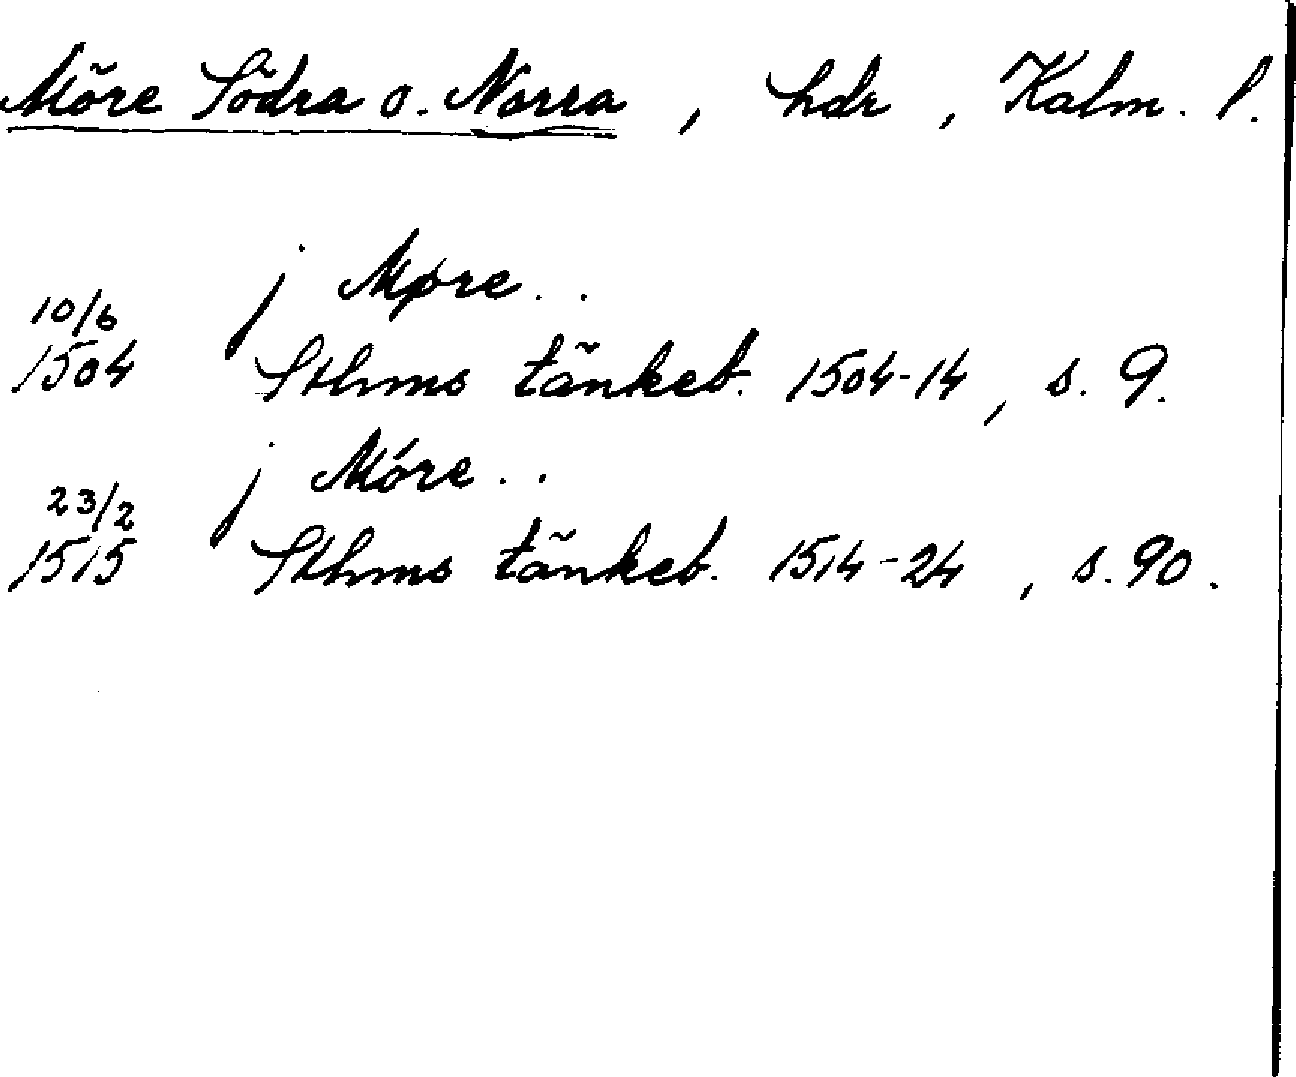 Möre Södra o. Norra, hdr, Kalm. l.
j Møre..
10/6
1504 Sthms tänkeb. 1504-14, s. 9.
j Móre..
23/2
1515 Sthms tänkeb. 1514-24, s. 90.